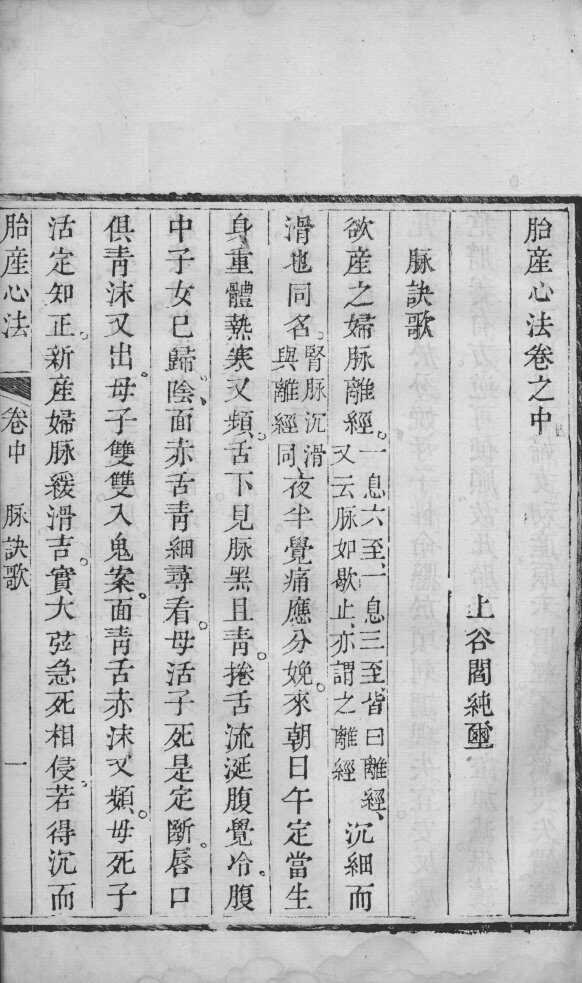 胎產心法卷之中
上谷閻純璽
脉訣歌
欲產之婦脉離經。一息六至、一息三至、皆曰離經、又云脉如歇止、亦謂之離經沉細而
滑也同名。腎脉沉滑與離經同夜半覺痛應分娩。來朝日午定當生
身重體熱寒又頻。舌下見脉黑且青。捲舌流涎腹覺冷。腹
中子女已歸陰、面赤舌青細尋看。母活子死是定斷。唇口
俱青沫又出。母子雙雙入鬼案。面青舌赤沫又頻。母死子
活定知正。新產婦脉緩滑吉。實大弦急死相侵。若得沉而
胎產心法 卷中 脉訣歌 一